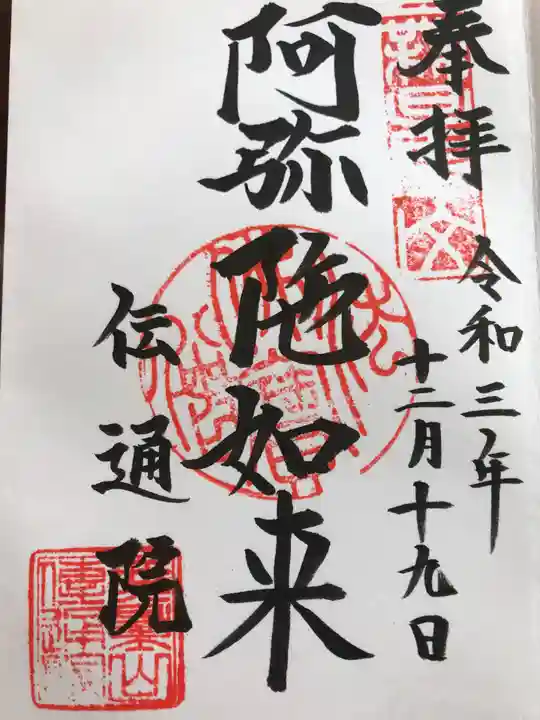 奉拝
令和三年
十二月十九日
阿弥陀如来
伝通院